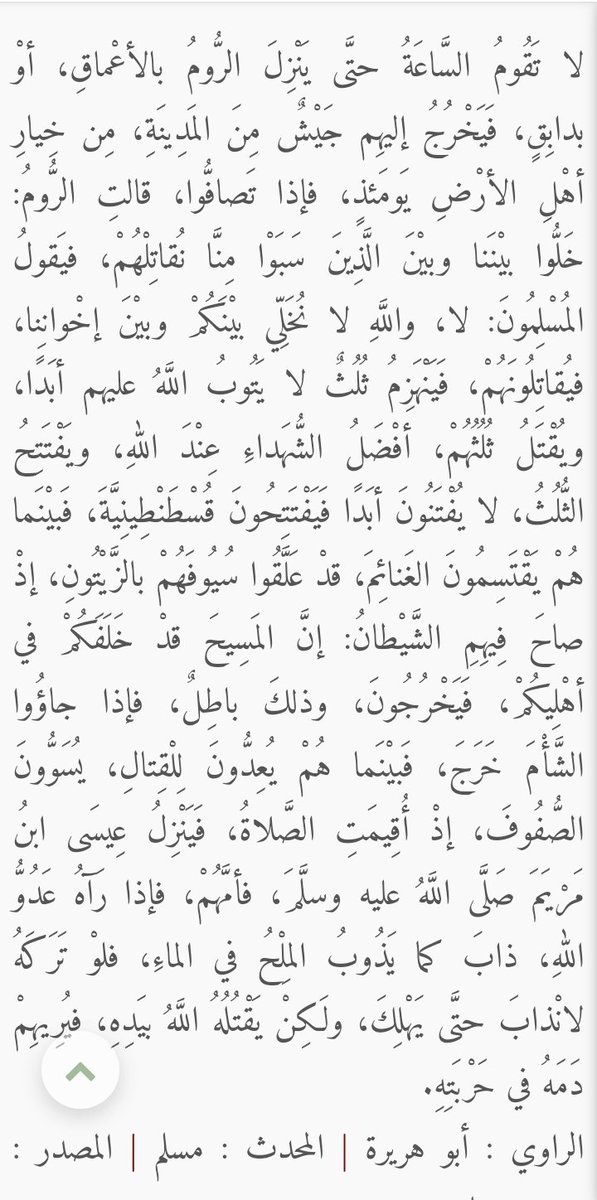 لا تَقُومُ السَّاعَةُ حتَّى يَنْزِلَ الرُّومُ بالأعْماقِ، أوْ
بدابِقٍ، فَيَخْرُجُ إليهِم جَيْشٌ مِنَ المَدِينَةِ، مِن خِيارِ
أهْلِ الأرْضِ يَومَئذٍ، فإذا تَصافُّوا، قالتِ الرُّومُ:
خَلُّوا بيْنَنا وبيْنَ الَّذِينَ سَبَوْا مِنَّا نُقاتِلْهُمْ، فيَقولُ
المُسْلِمُونَ: لا، واللَّهِ لا نُخَلِّي بيْنَكُمْ وبيْنَ إخْوانِنا،
فيُقاتِلُونَهُمْ، فَيَنْهَزِمُ ثُلُثٌ لا يَتُوبُ اللَّهُ عليهم أبَدًا،
ويُقْتَلُ ثُلُثُهُمْ، أفْضَلُ الشُّهَداءِ عِنْدَ اللهِ، ويَفْتَتِحُ
الثُّلُثُ، لا يُفْتَنُونَ أبَدًا فَيَفْتَتِحُونَ قُسْطَنْطِينِيَّةَ، فَبيْنَما
هُمْ يَقْتَسِمُونَ الغَنائِمَ، قدْ عَلَّقُوا سُيُوفَهُمْ بالزَّيْتُونِ، إذْ
صاحَ فِيهِمِ الشَّيْطانُ: إنَّ المَسِيحَ قدْ خَلَفَكُمْ في
أهْلِيكُمْ، فَيَخْرُجُونَ، وذلكَ باطِلٌ، فإذا جاؤُوا
الشَّأْمَ خَرَجَ، فَبيْنَما هُمْ يُعِدُّونَ لِلْقِتالِ، يُسَوُّونَ
الصُّفُوفَ، إذْ أُقِيمَتِ الصَّلاةُ، فَيَنْزِلُ عِيسَى ابنُ
مَرْيَمَ صَلَّى اللَّهُ عليه وسلَّمَ، فأمَّهُمْ، فإذا رَآهُ عَدُوُّ
اللهِ، ذابَ كما يَذُوبُ المِلْحُ في الماءِ، فلوْ تَرَكَهُ
لانْذابَ حتَّى يَهْلِكَ، ولَكِنْ يَقْتُلُهُ اللَّهُ بيَدِهِ، فيُرِيهِمْ
دَمَهُ في حَرْبَتِهِ.
الراوي : أبو هريرة | المحدث : مسلم | المصدر :